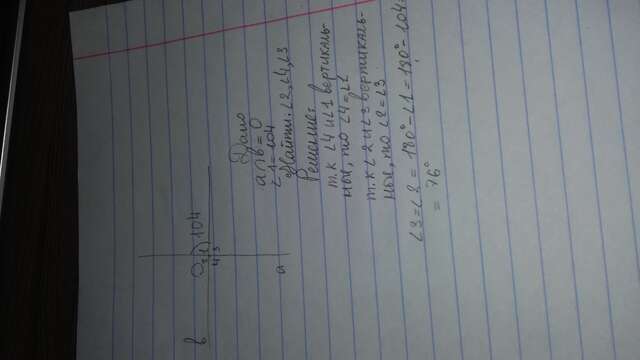 в
О 2 1 104
4 3
а
Дано
a ∩ b = 0
∠1 = 104
Найти: ∠2, ∠4, ∠3
Решение:
т.к ∠4 и ∠1 вертикаль-
ные, то ∠4 = ∠1
т.к ∠2 и ∠3 вертикаль-
ные, то ∠2 = ∠3
∠3 = ∠2 = 180° - ∠1 = 180° - 104 =
= 76°